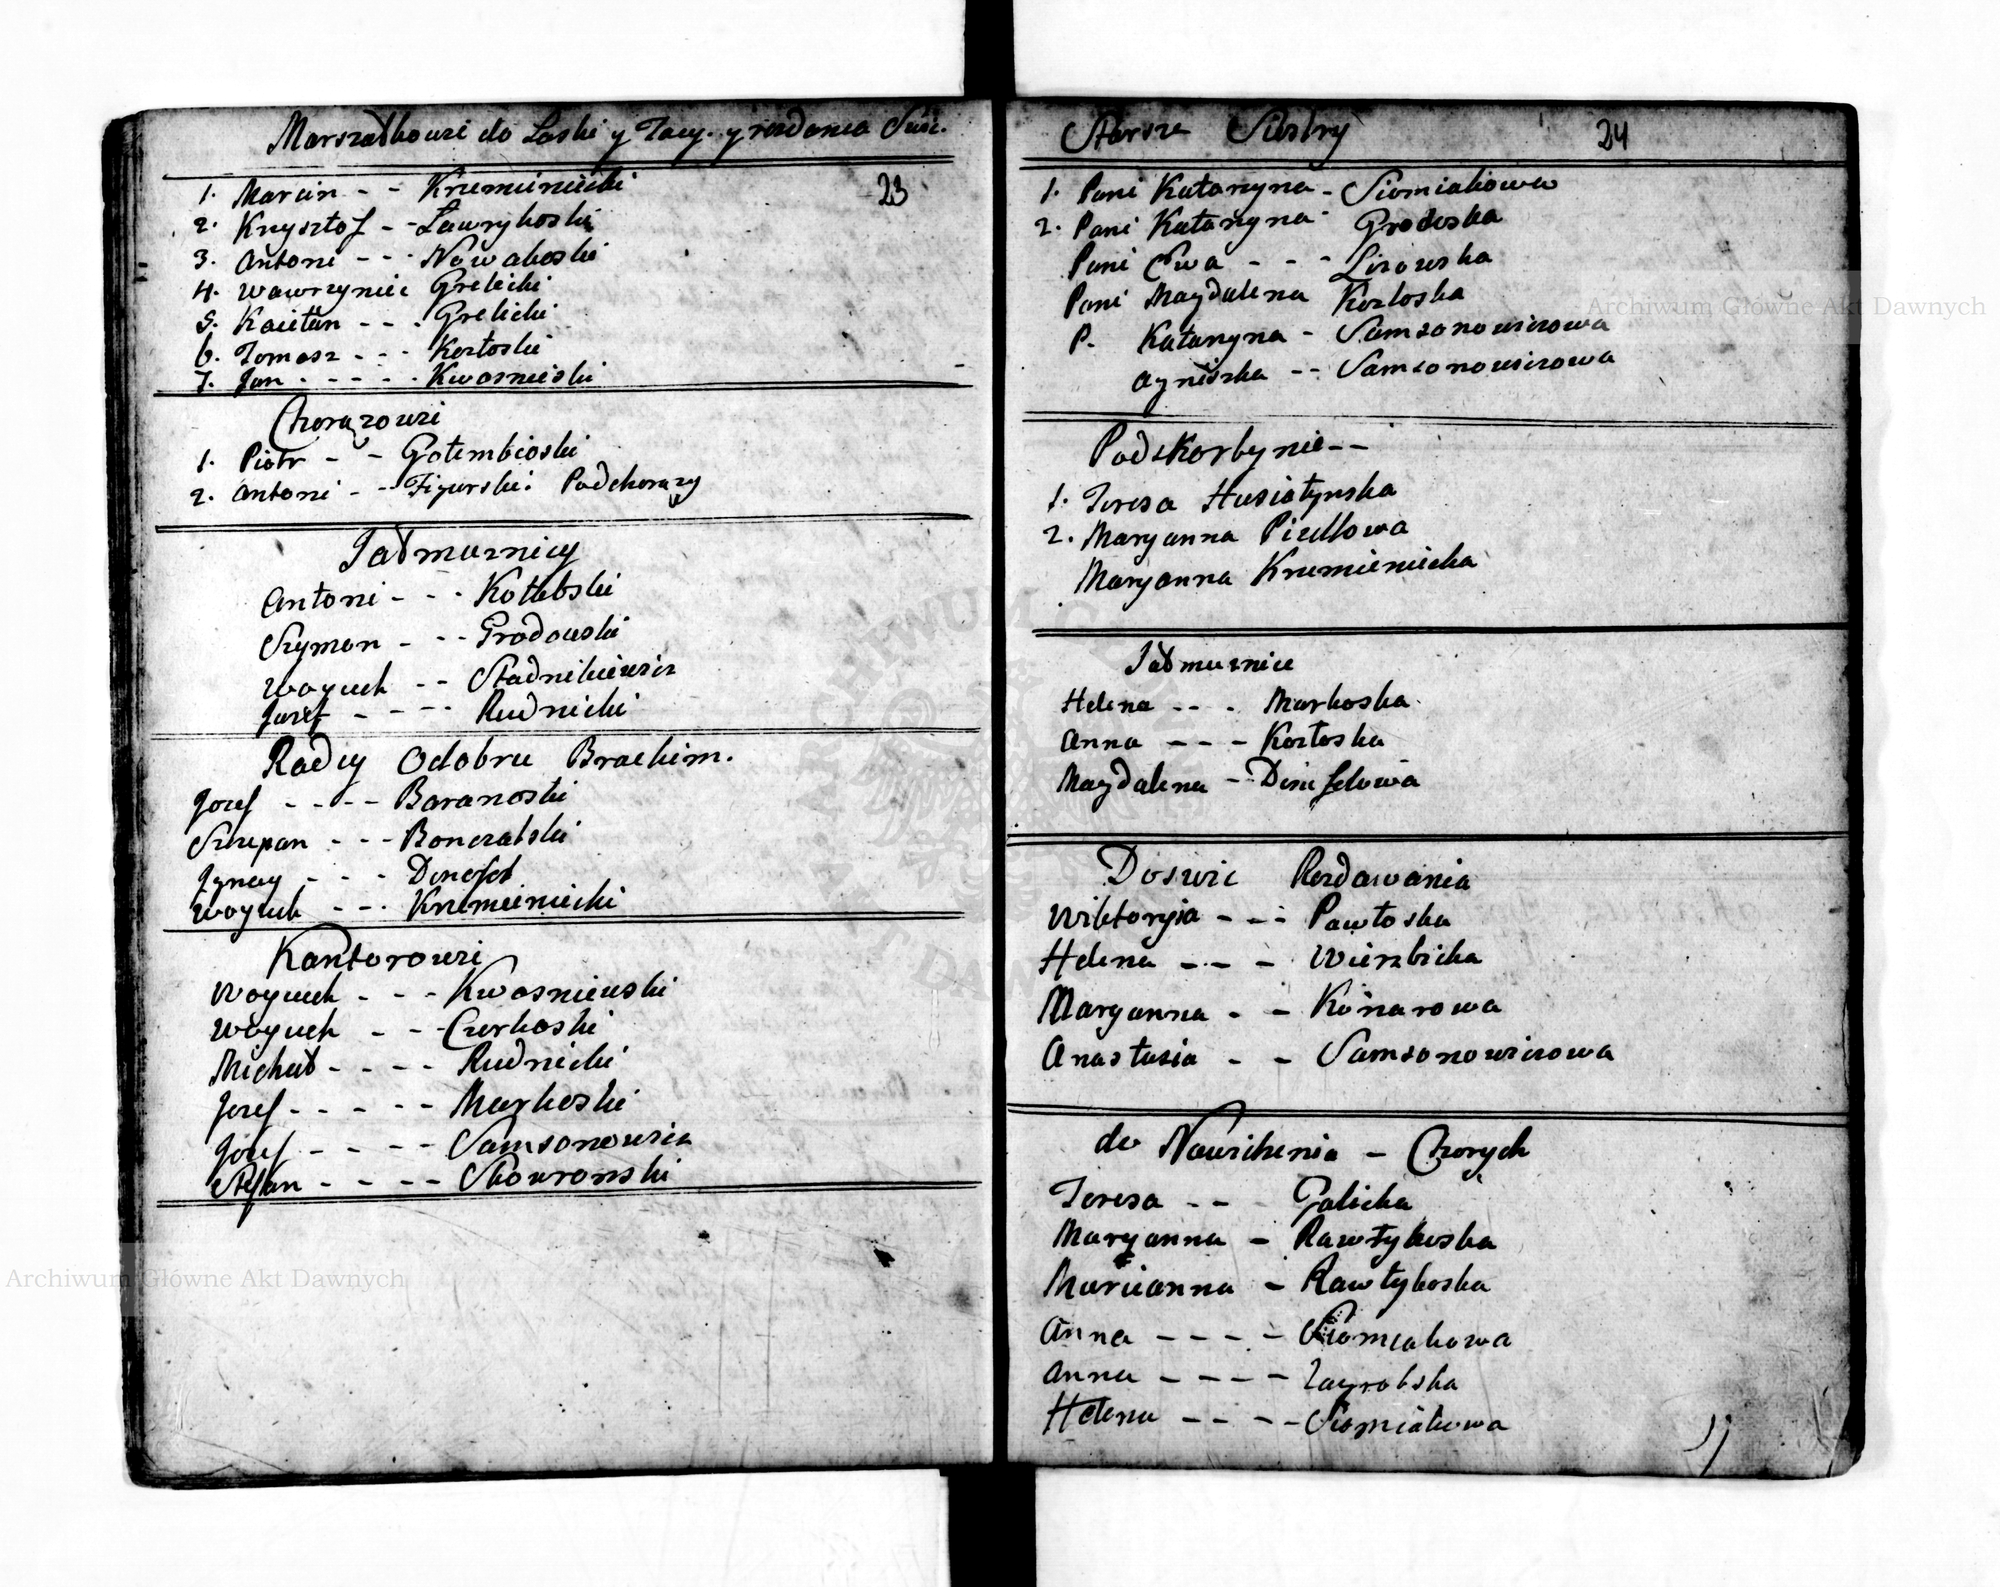 Marszałkowie do Laski y Tacy. y rozdania Swic.
23
1. Marcin - - Krzemieniecki
2. Krysztof - - Ławrykoski
3. Antoni - - - Nowakoski
4. Wawrzyniec Grelicki
5. Kaietan - - - Grelicki
6. Tomasz - - - Kozłoski
7. Jan - - - - - Kwasnieski
Chorązowie
1. Piotr - - Gołembioski
2. Antoni - - Figurski. Podchorązy
Jałmuznicy
Antoni - - - Kotelski
Szymon - - - Grodowski
Woyciech - - Stadnikiewicz
Jozef - - - - Rudnicki
Radcy Odobru Brackim.
Jozef - - - - Baranoski
Szczepan - - - Bonczalski
Jgnacy - - - Denefel
Woyciech - - - Krzemieniecki
Kantorowie
Woyciech - - - Kwasniewski
Woyciech - - - Czerkoski
Michał - - - - Rudnicki
Jozef - - - - - Markoski
Jozef - - - - - Samsonowicz
Stefan - - - - - Skowronski
Starsze Siostry
24
1. Pani Katarzyna - Siomiakowa
2. Pani Katarzyna - Grodoska
Pani Ewa - - - Lisowska
Pani Magdalena Kozłoska
P. Katarzyna - Samsonowiczowa
Agnieszka - - Samsonowiczowa
Podskarbynie - -
1. Teresa Husiatynska
2. Maryanna Piellowa
Maryanna Krzemieniecka
Jałmuznice
Helena - - - Markoska
Anna - - - Kozłoska
Magdalena - Denefelowa
Do Swic Rozdawania
Wiktoryia - - - Pawłoska
Helena - - - Wierzbicka
Maryanna - - Konarowa
Anastazia - - Samsonowiczowa
do Nawidzenia - Chorych
Teresa - - Galicka
Maryanna - Rawłykoska
Marcianna - Rawłykoska
Anna - - - - Siomiakowa
Anna - - - - Zagrobska
Helena - - - - Siomiakowa
Archiwum Główne Akt Dawnych
Archiwum Główne Akt Dawnych